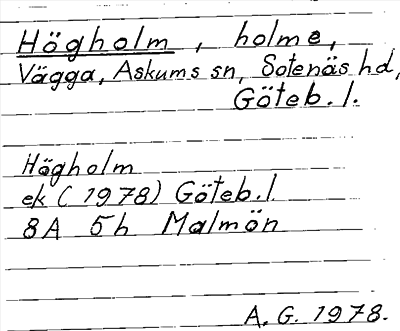 Högholm, holme,
Vägga, Askums sn, Sotenäs hd,
Göteb. l.
Högholm
ek (1978) Göteb. l.
8A 5h Malmön
A. G. 1978.